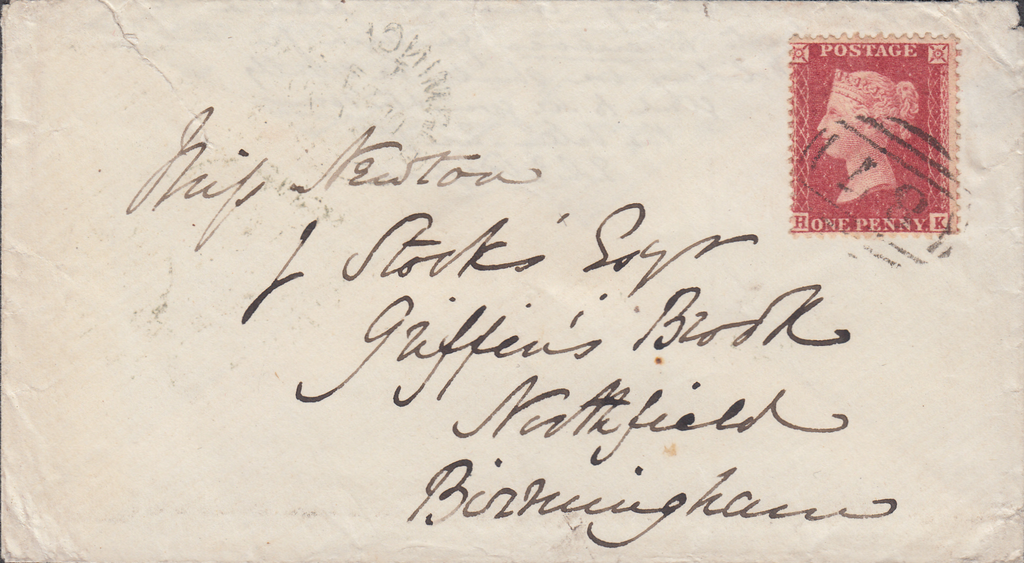 POSTAGE
H ONE PENNY K
Miss Newton
J Stocks Esqr
Griffin's Brook
Northfield
Birmingham